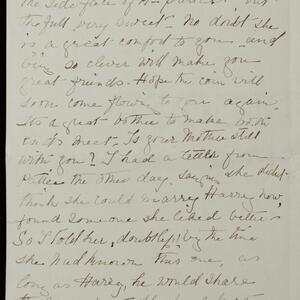 the side face of
the full, very sweet. No doubt she
is a great comfort to you and
being so clever will make you
great friends. Hope the coin will
soon come flowing to you again.
Its a great bother to make both
ends meet. Is your Mother still
with you? I had a letter from
the other day, saying she didn't
think she could marry Harry now,
found someone she liked better
So I told her, doubtless! by the time
she had known this one, as
long as Harry, he would share
the